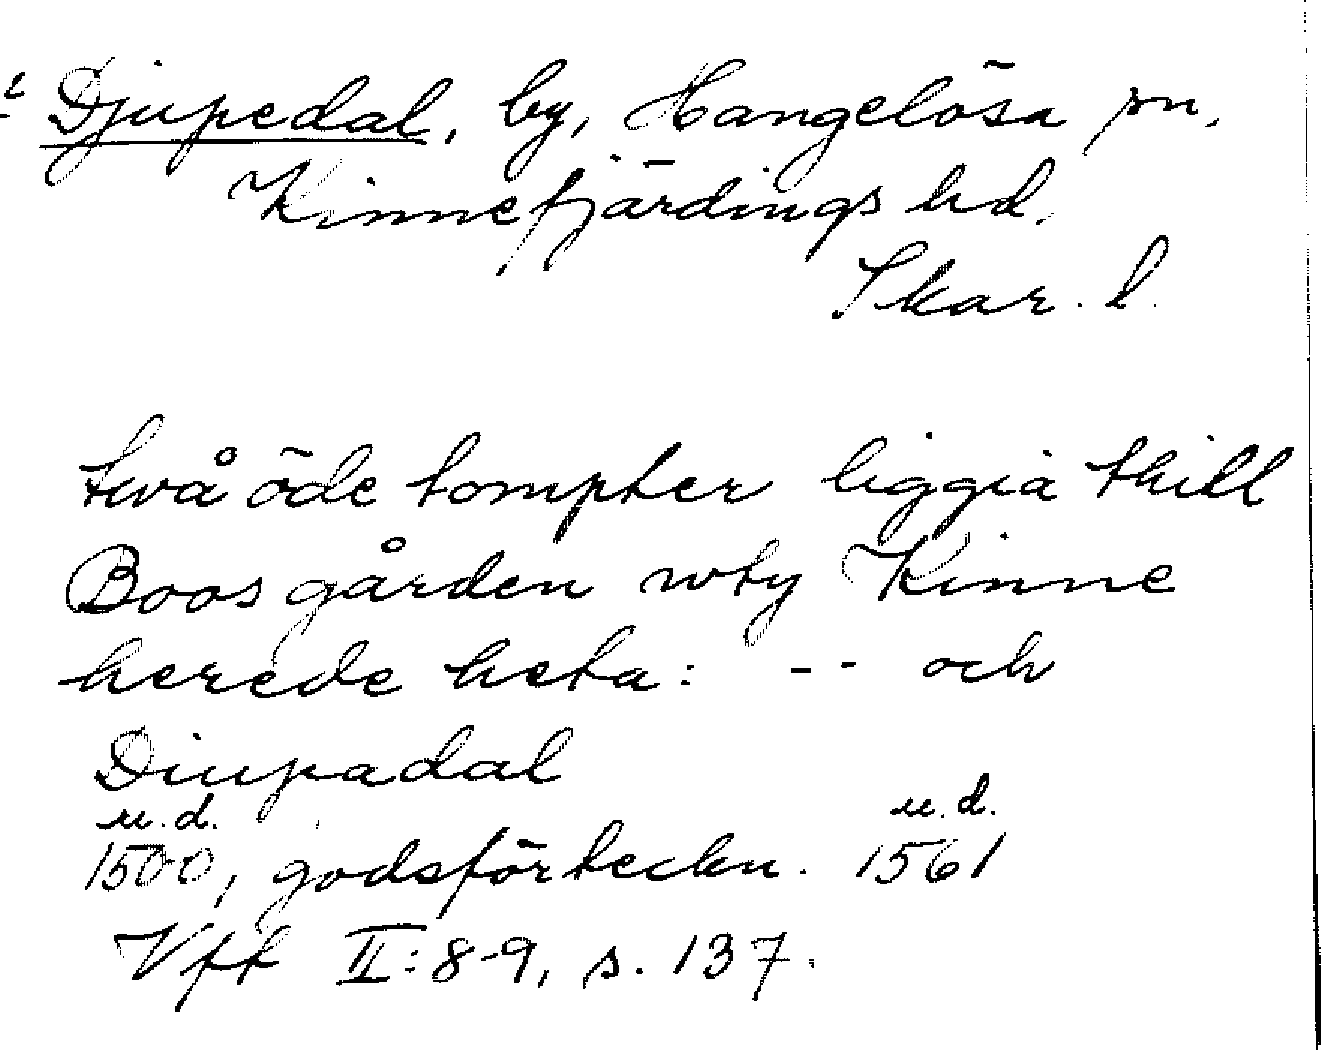 Djupedal, by, Hangelösa sn,
Kinnefjärdings hd.
Skar. l.
två öde tompter liggia thill
Boosgården wty Kinne
herede heta: -- och
Diupadal
u.d. u.d.
1500, godsförteckn. 1561
Vff II:8-9, s. 137.